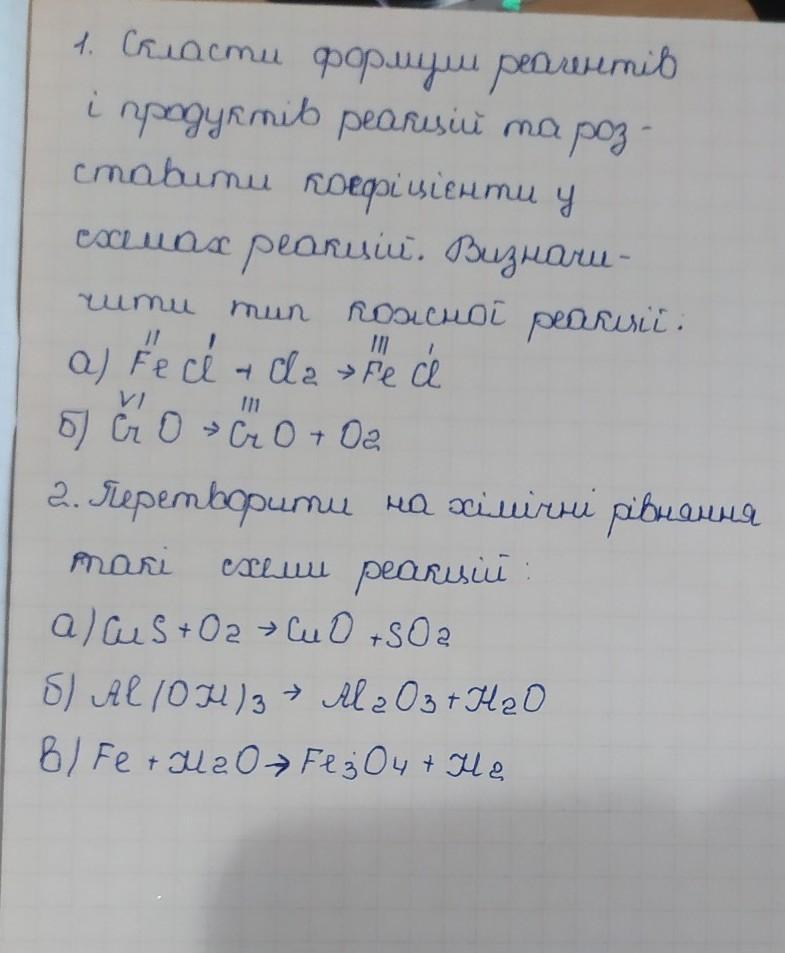 1. Скласти формули реагентів
і продуктів реакцій та роз-
ставити коефіцієнти у
схемах реакцій. Визначи-
чити тип кожної реакції:
II I III I
а) FeCl + Cl2 → FeCl
VI III
б) CrO → CrO + O2
2. Перетворити на хімічні рівняння
такі схеми реакцій:
а) CuS + O2 → CuO + SO2
б) Al(OH)3 → Al2O3 + H2O
в) Fe + H2O → Fe3O4 + H2